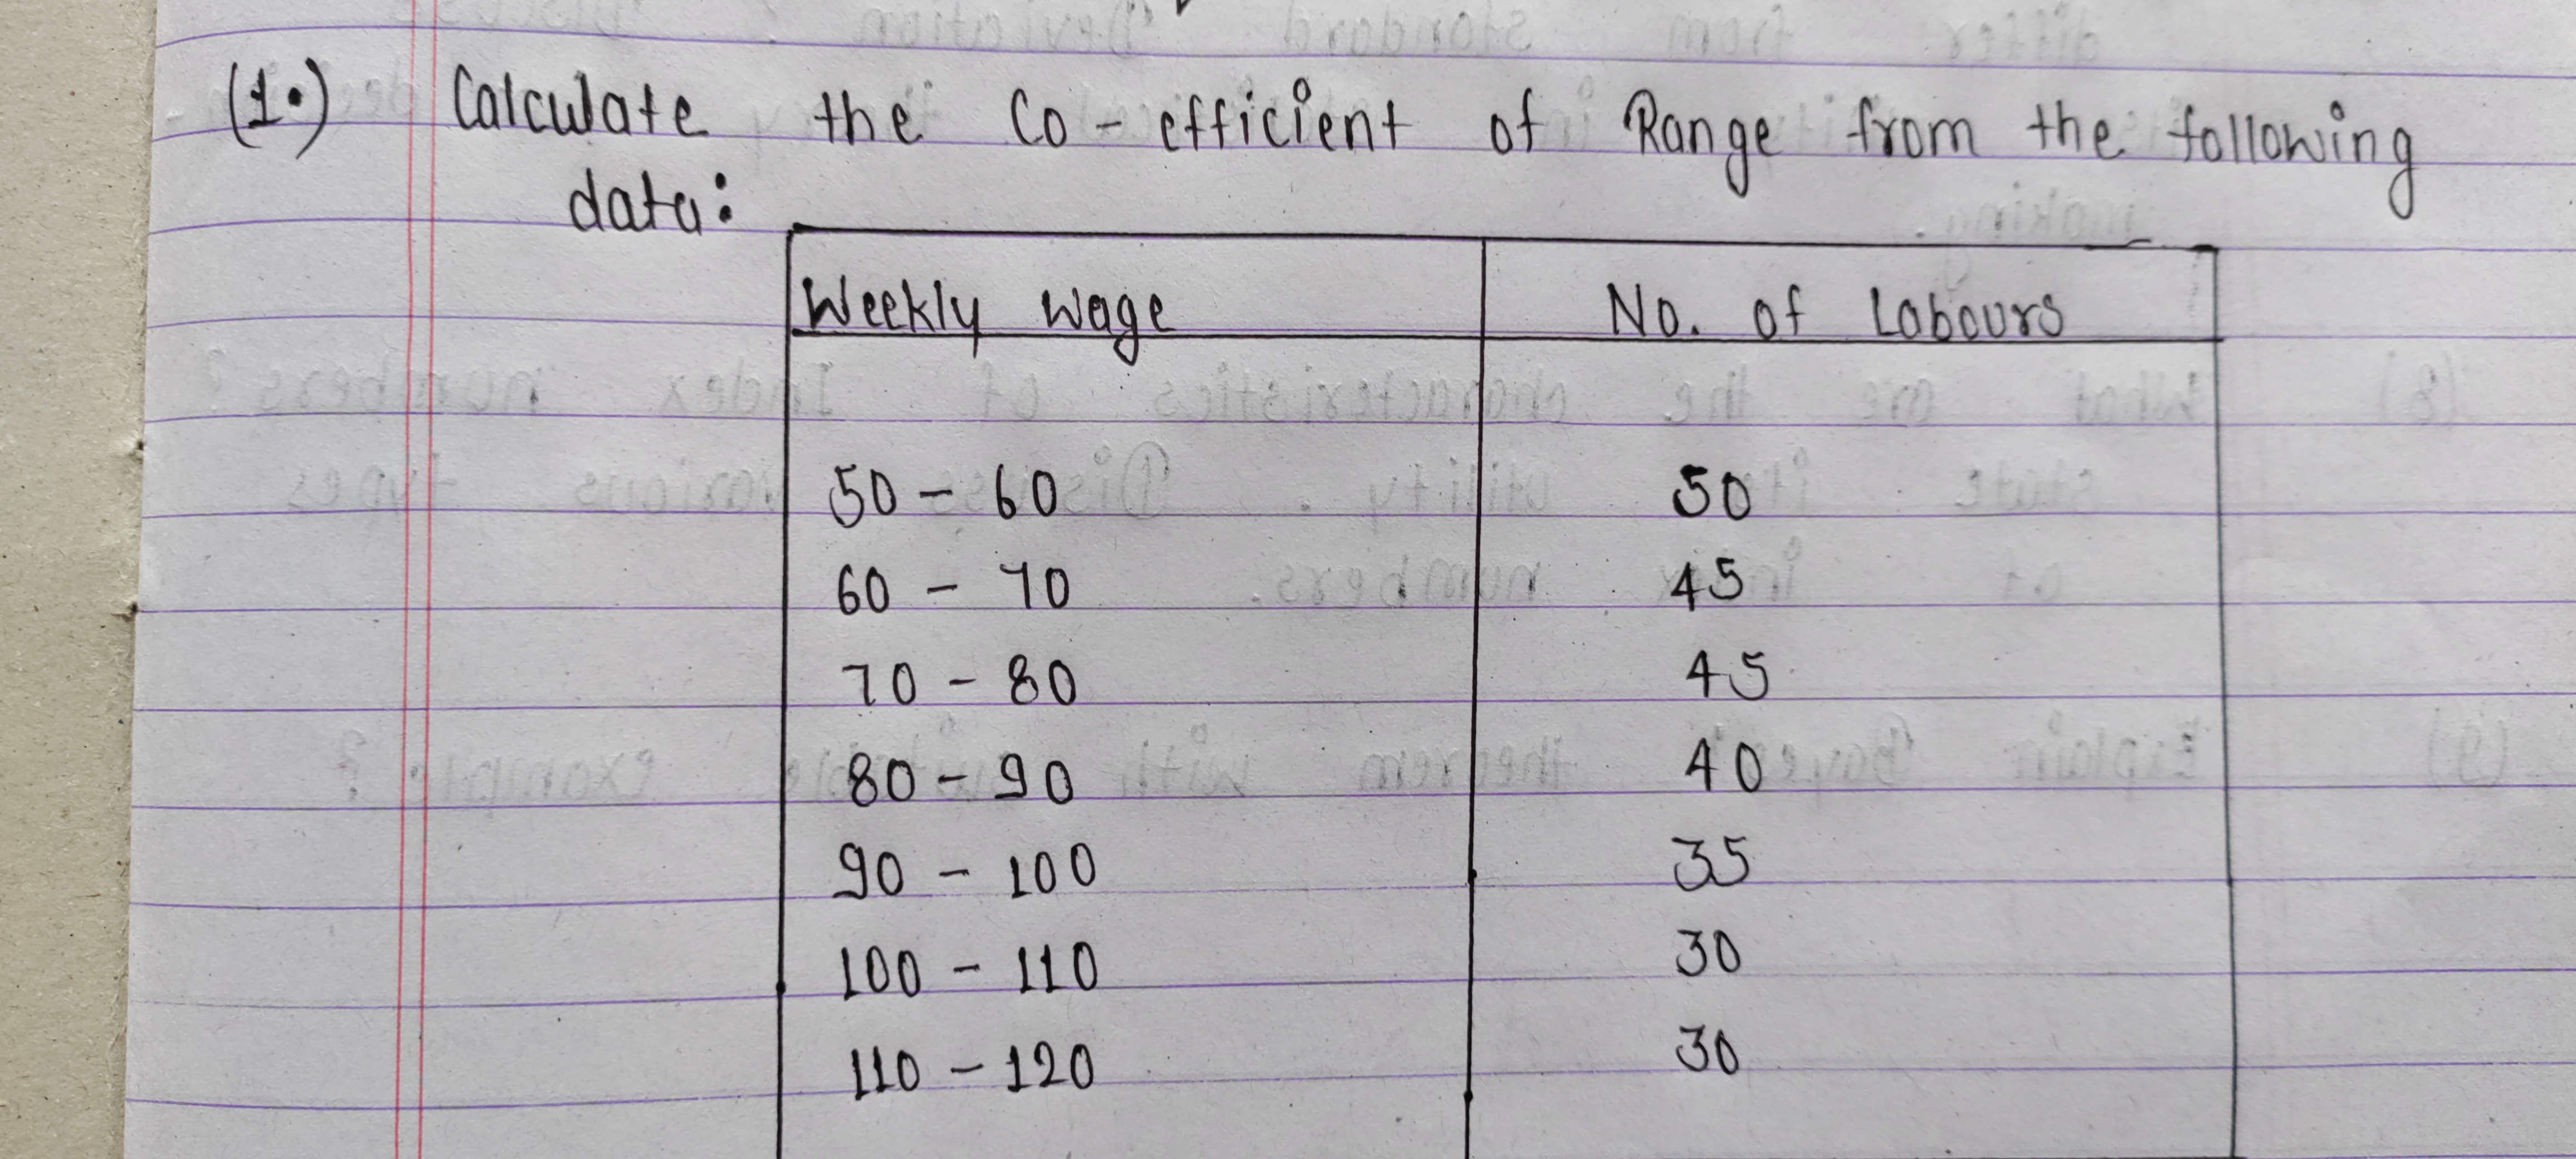 (1.) Calculate the Co-efficient of Range from the following
data:
Weekly wage No. of Labours
50 - 60 50
60 - 70 45
70 - 80 45
80 - 90 40
90 - 100 35
100 - 110 30
110 - 120 30